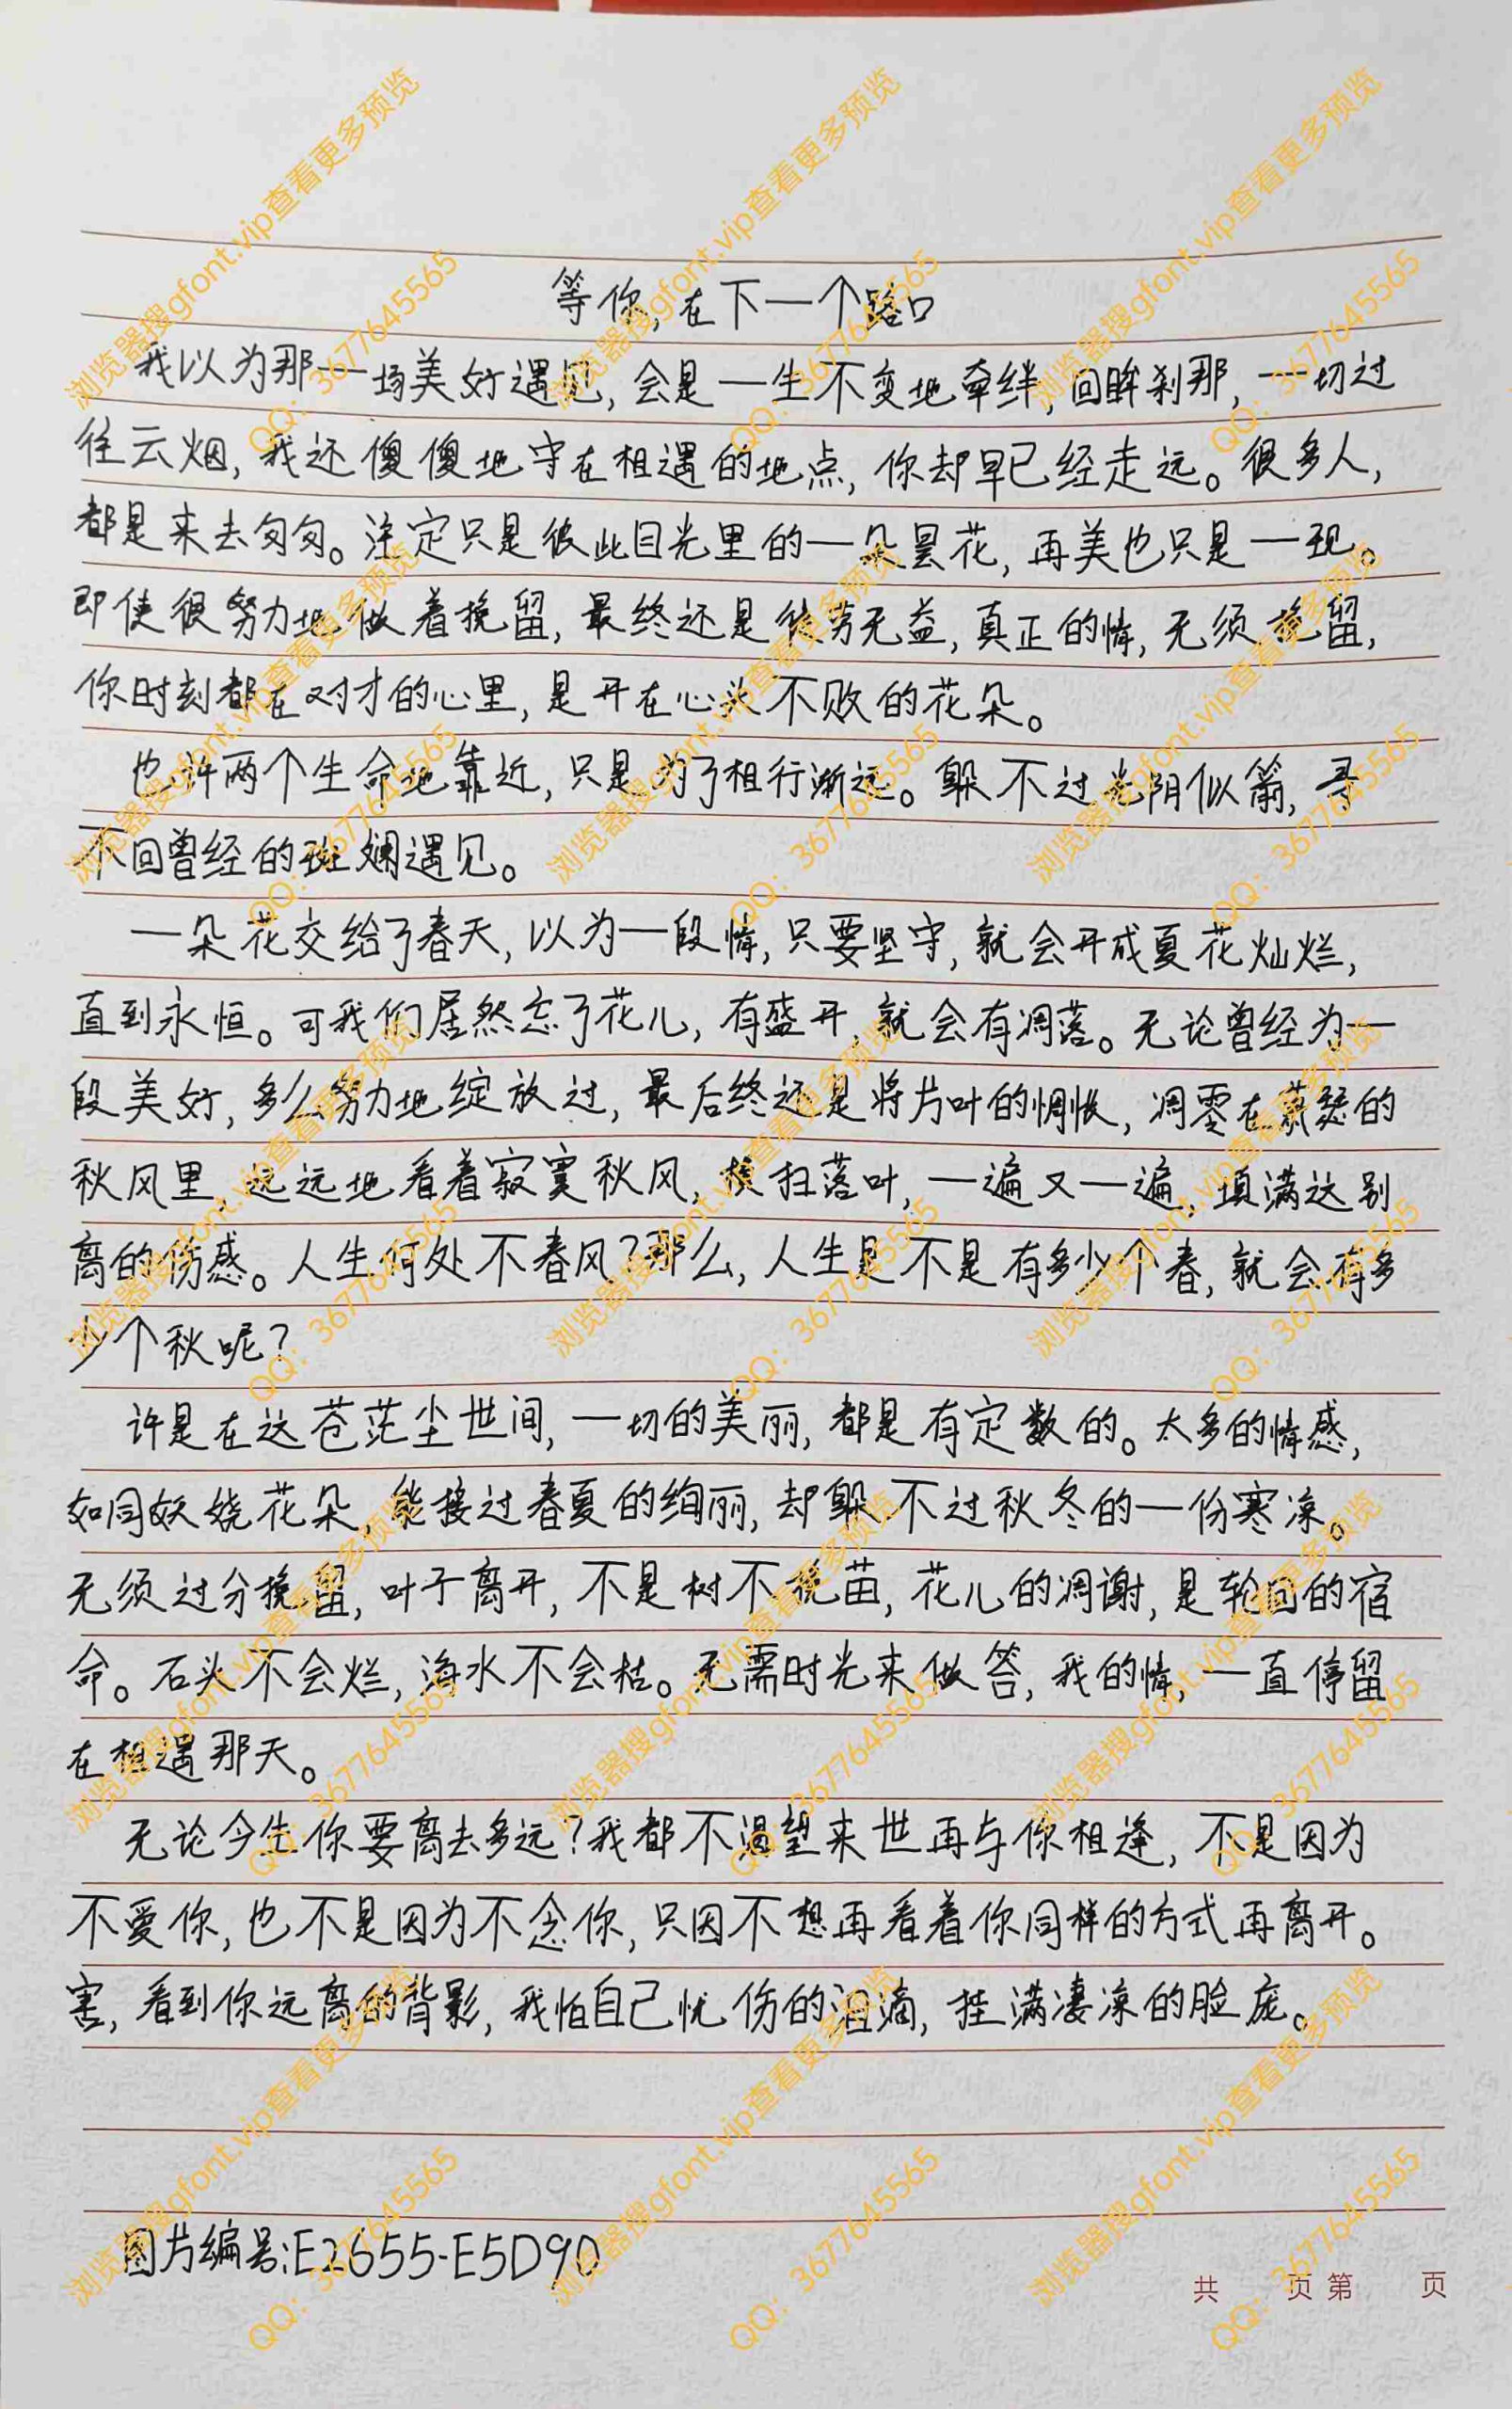 等你,在下一个路口
我以为那一场美好遇见,会是一生不变地牵绊,回眸刹那,一切过
往云烟,我还傻傻地守在相遇的地点,你却早已经走远。很多人,
都是来去匆匆。注定只是彼此目光里的一朵昙花,再美也只是一现。
即使很努力地做着挽留,最终还是徒劳无益,真正的情,无须挽留,
你时刻都在对才的心里,是开在心头不败的花朵。
也许两个生命地靠近,只是为了相行渐远。躲不过光阴似箭,寻
不回曾经的斑斓遇见。
一朵花交给了春天,以为一段情,只要坚守,就会开成夏花灿烂,
直到永恒。可我们居然忘了花儿,有盛开,就会有凋落。无论曾经为一
段美好,多么努力地绽放过,最后终还是将片叶的惆怅,凋零在萧瑟的
秋风里,远远地看着寂寞秋风,横扫落叶,一遍又一遍,填满这别
离的伤感。人生何处不春风?那么,人生是不是有多少个春,就会有多
少个秋呢?
许是在这苍茫尘世间,一切的美丽,都是有定数的。太多的情感,
如同妖娆花朵,能接过春夏的绚丽,却躲不过秋冬的一份寒凉。
无须过分挽留,叶子离开,不是树不挽苗,花儿的凋谢,是轮回的宿
命。石头不会烂,海水不会枯。无需时光来做答,我的情,一直停留
在相遇那天。
无论今生你要离去多远?我都不渴望来世再与你相逢,不是因为
不爱你,也不是因为不念你,只因不想再看着你同样的方式再离开。
害,看到你远离的背影,我怕自己忧伤的泪滴,挂满凄凉的脸庞。
图片编号:E2655-E5D90
共 页 第 页
浏览器搜gfont.vip查看更多预览
QQ: 3677645565